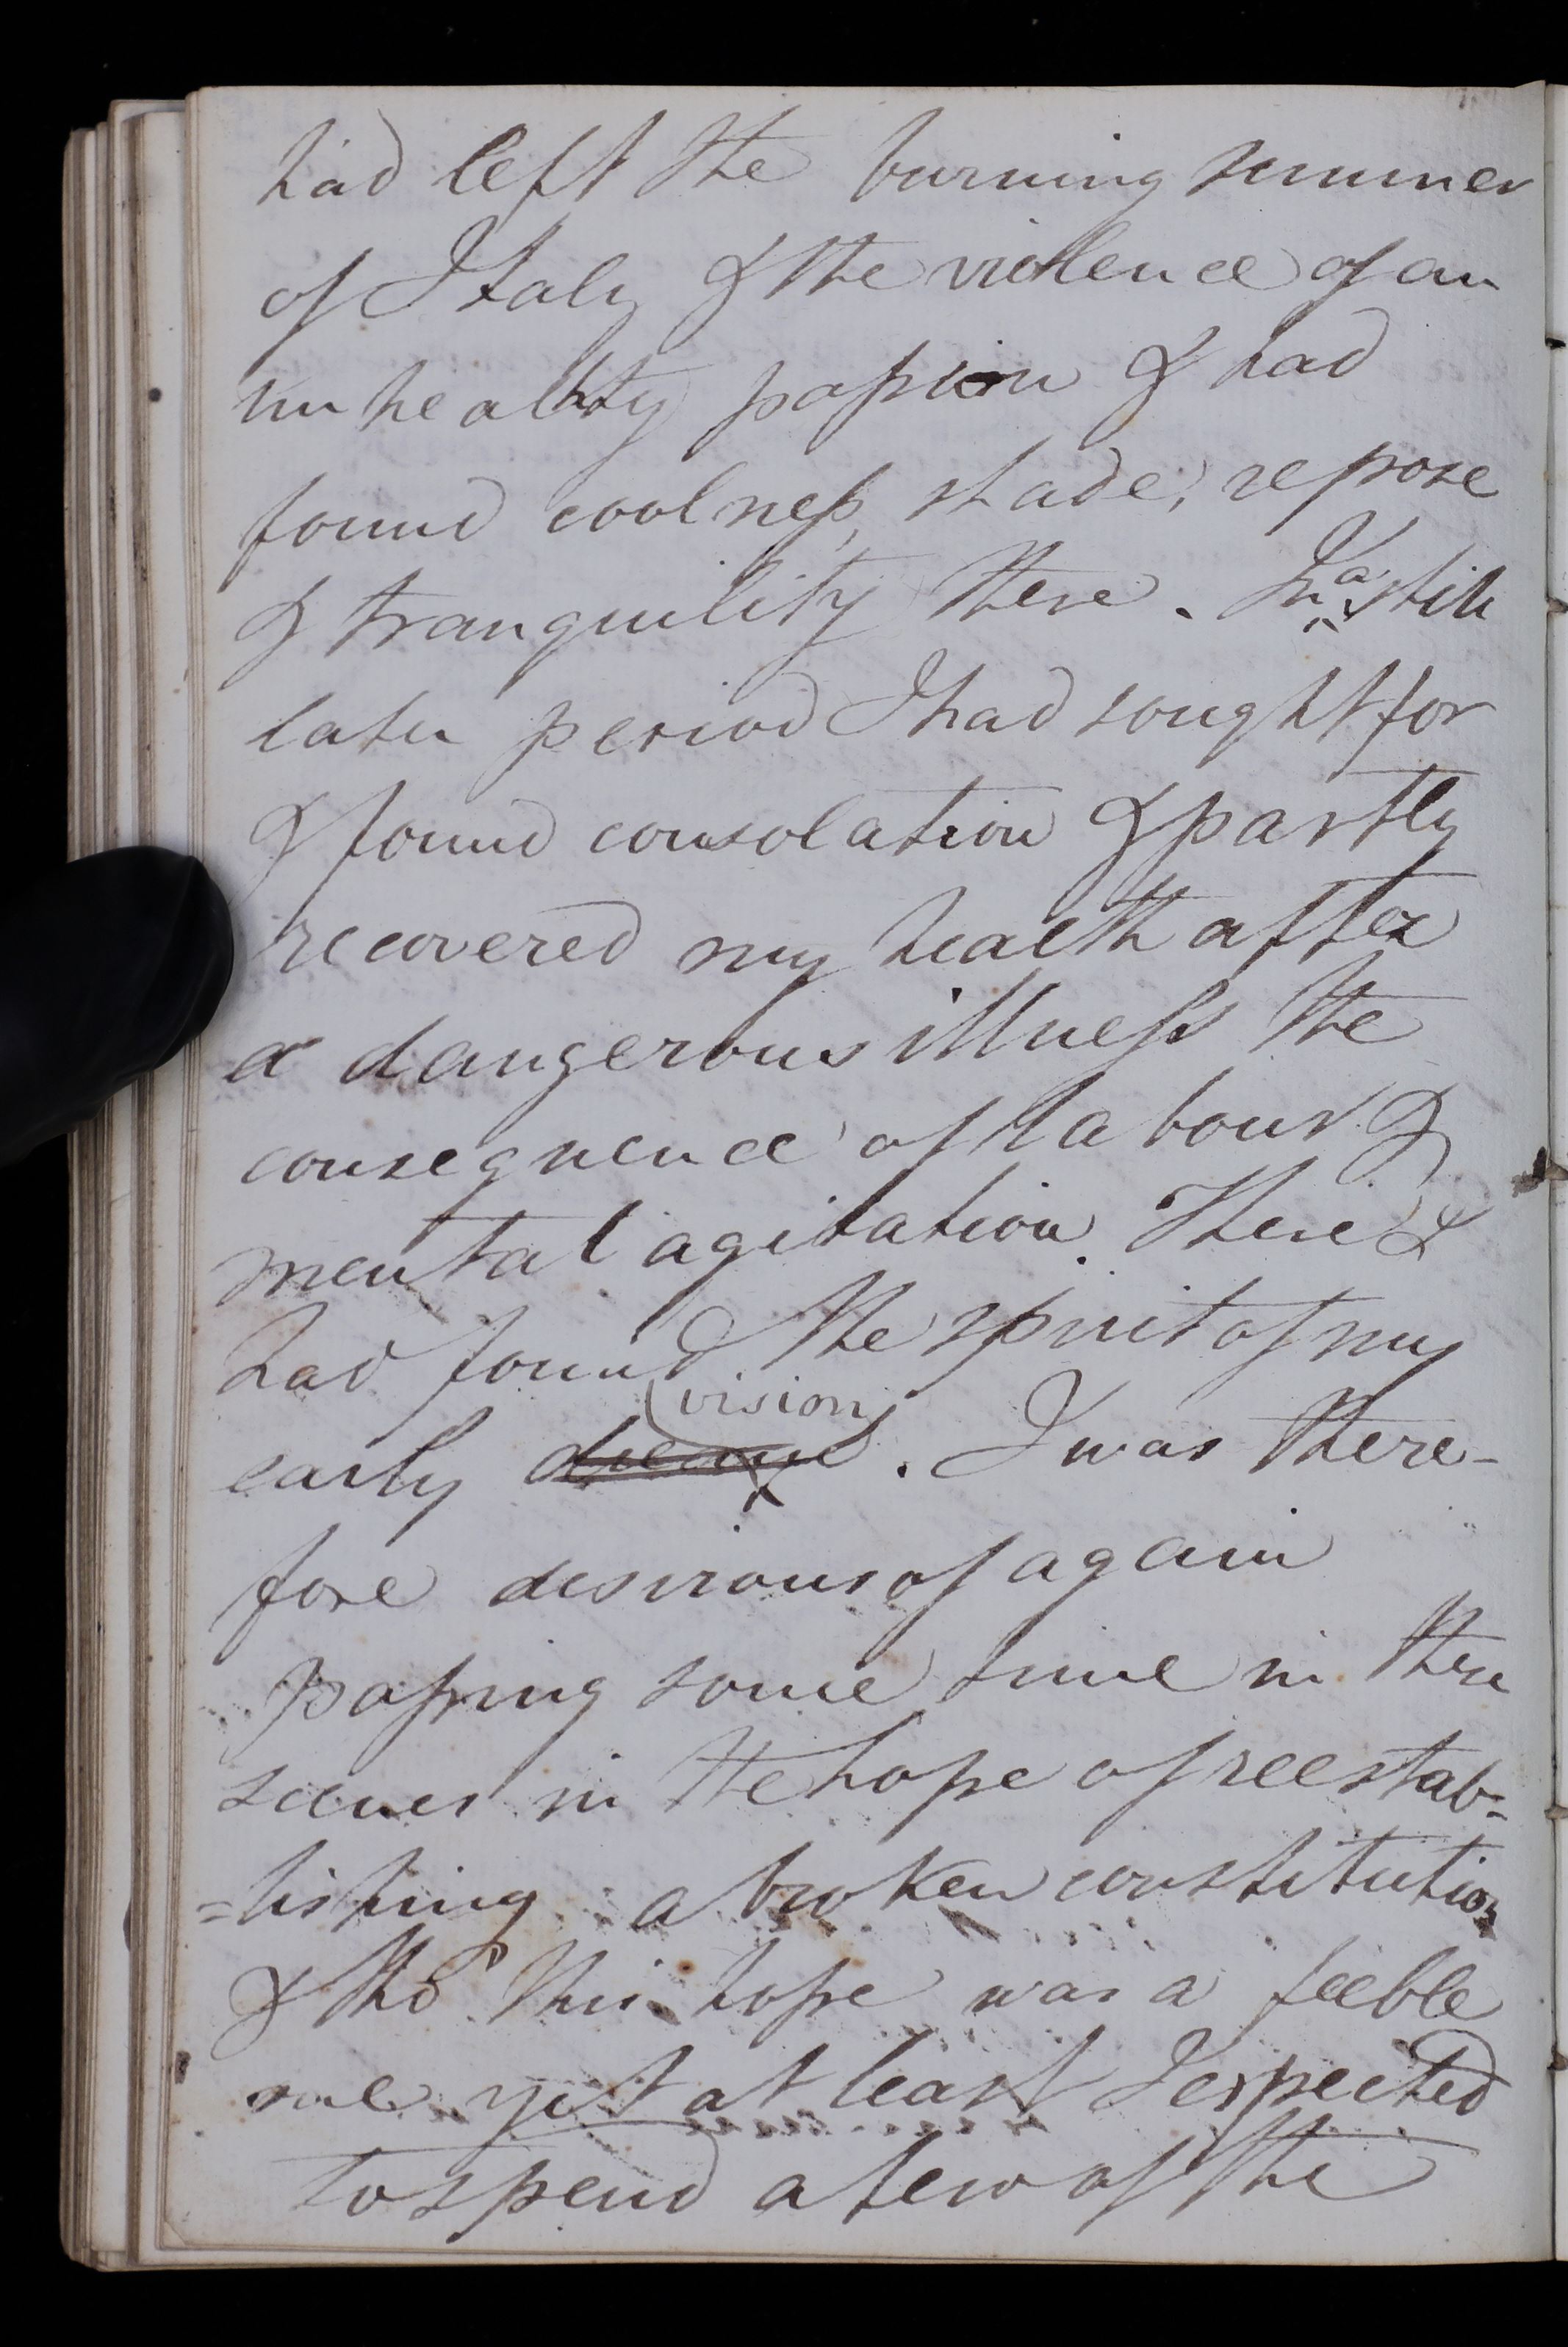 had left the burning summer
of Italy & the violence of an
unhealthy passion & had
found coolness, shade, repose
& tranquility there. In a still
later period I had sought for
& found consolation & partly
recovered my health after
a dangerous illness the
consequence of labour &
mental agitation. There I
had found the spirit of my
vision
early dream. I was there-
fore desirous of again
passing some time in these
scenes in the hope of reestab=
=lishing a broken constitution
& tho' this hope was a feeble
one yet at least I expected
to spend a few of the